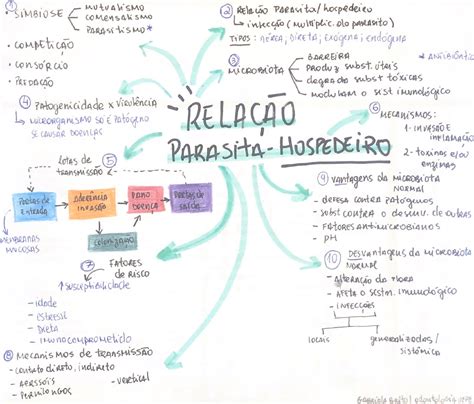 ① SIMBIOSE
MUTUALISMO
COMENSALISMO
PARASITISMO *
• COMPETIÇÃO
• CONSÓRCIO
• PREDAÇÃO
② RELAÇÃO PARASITA/HOSPEDEIRO
↳ INFECÇÃO (multiplic. do parasito)
TIPOS: AÉREA, DIRETA, EXÓGENA, ENDÓGENA
③ MICROBIOTA
BARREIRA
PRODUZ SUBST. ÚTEIS
DEGRADA SUBST TÓXICAS
MODULAM O SIST IMUNOLÓGICO
④ PATOGENICIDADE X VIRULÊNCIA
↳ MICRORGANISMO SÓ É PATÓGENO
SE CAUSAR DOENÇAS
RELAÇÃO
PARASITA-HOSPEDEIRO
⑥ MECANISMOS:
1- INVASÃO E
INFLAMAÇÃO
2- TOXINAS E/OU
ENZIMAS
ROTAS DE
TRANSMISSÃO
⑤
PORTAS DE
ENTRADA
ADERÊNCIA
INVASÃO
DANO
DOENÇA
PORTAS DE
SAÍDA
COLONIZAÇÃO
MEMBRANAS
MUCOSAS
⑦ FATORES
DE RISCO
↑ SUSCEPTIBILIDADE
- IDADE
- ESTRESSE
- DIETA
- IMUNOCOMPROMETIDO
⑧ MECANISMOS DE TRANSMISSÃO
- CONTATO DIRETO, INDIRETO
- AEROSSÓIS
- PERDIGOTOS
- VERTICAL
⑨ VANTAGENS DA MICROBIOTA
NORMAL
- DEFESA CONTRA PATÓGENOS
- SUBST CONTRA O DESENV. DE OUTROS
- FATORES ANTIMICROBIANOS
- PH
⑩ DESVANTAGENS DA MICROBIOTA
NORMAL
- ALTERAÇÃO DA FLORA
- AFETA O SIST. IMUNOLÓGICO
- INFECÇÕES
LOCAIS
GENERALIZADAS/
SISTÊMICA